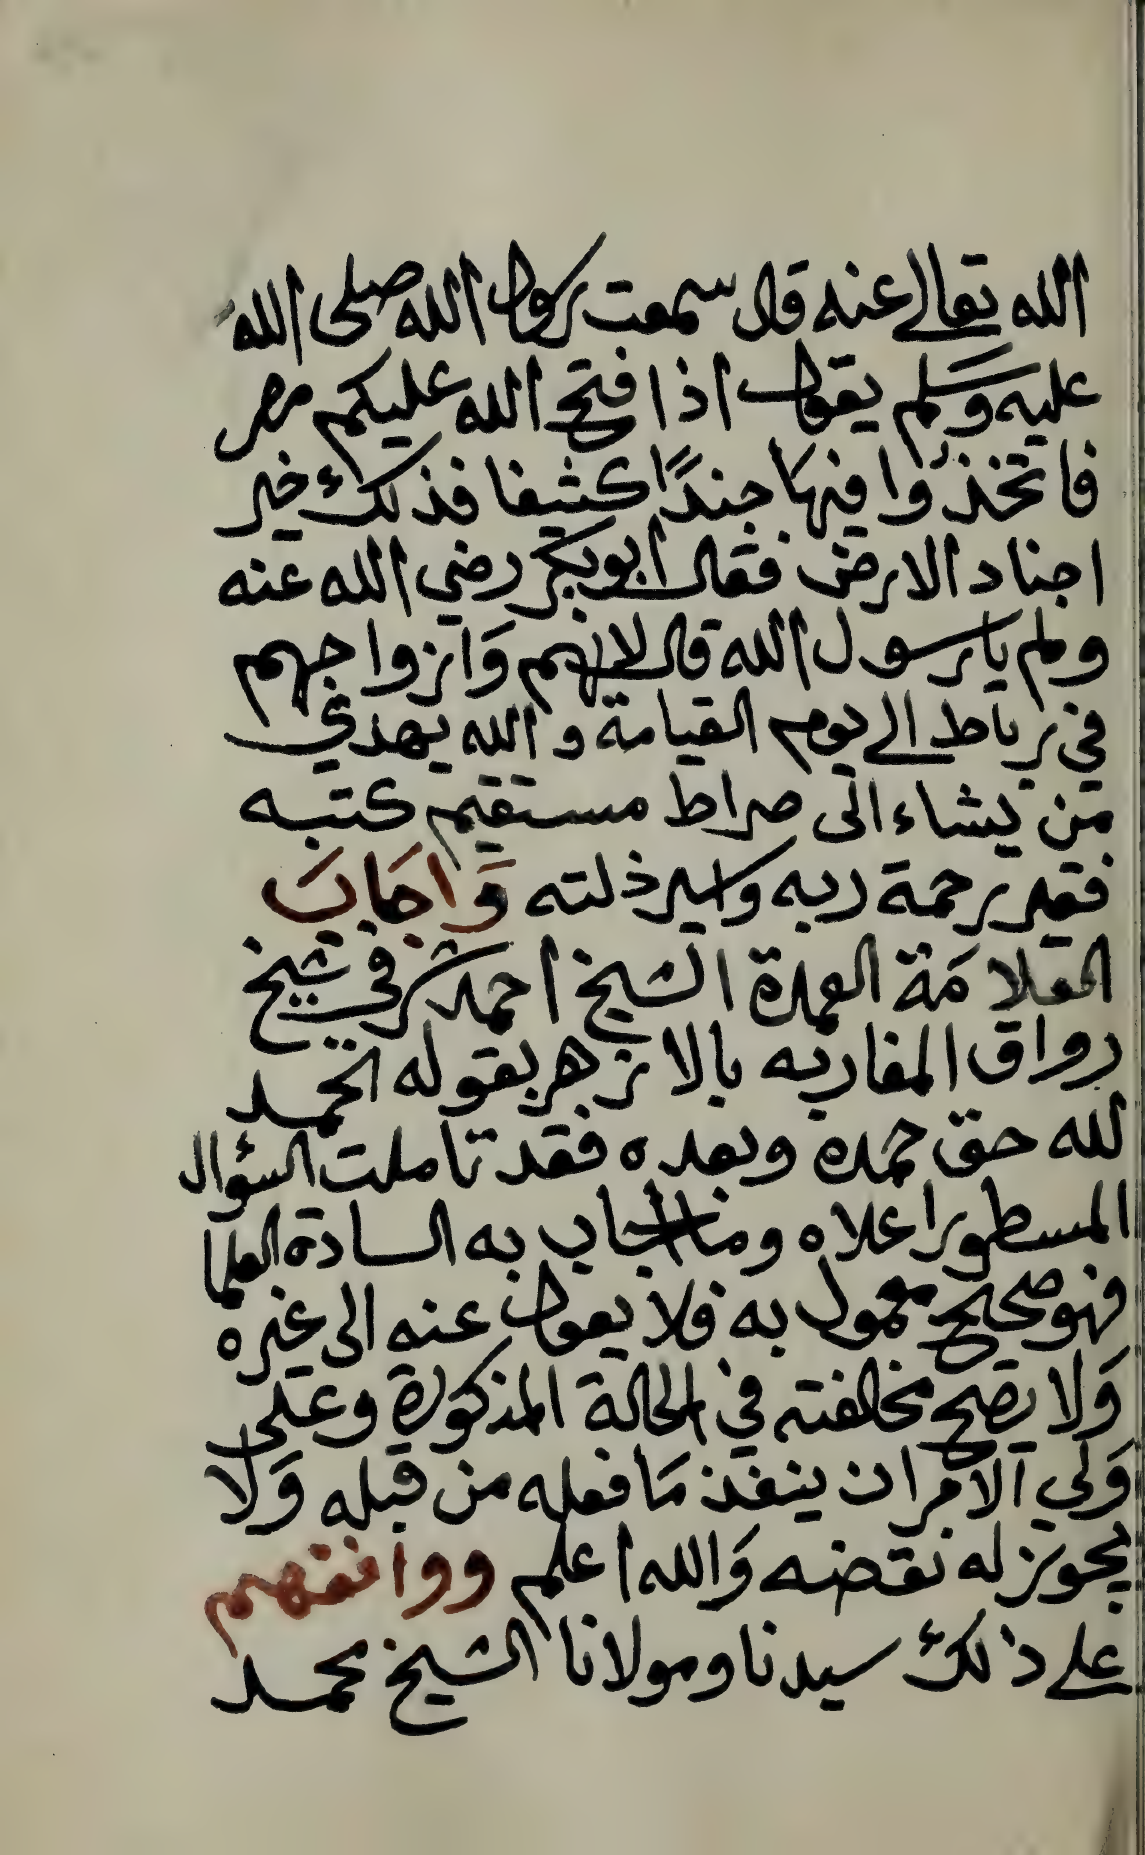 الله تعالى عنه قال سمعت رسول الله صلى الله
عليه وسلم يقول اذا فتح الله عليكم مصر
فاتخذوا فيها جندًا كثيفا فذلك خير
اجناد الارض فقال ابو بكر رضي الله عنه
ولم يا رسول الله قال لانهم وَازواجهم
في رباط الى يوم القيامة والله يهدي
مَن يشاء الى صراط مستقيم كتبه
فقير رحمة ربه واسير ذلته وَاجَابَ
العلامَة العمدة الشيخ احمد شرفي شيخ
رواق المغاربه بالازهر بقوله الحمد
لله حق حمده وبعده فقد تاملت السؤال
المسطور اعلاه وما اجاب به السادة العلما
فهو صحيح معمول به فلا يعول عنه الى غيره
وَلا يصح مخالفته في الحالة المذكورة وعَلى
وَلي الامر ان ينفذ مَا فعله من قبله وَلا
يجوز له نقضه وَالله اعلم ووافقهم
على ذلك سيدنا ومولانا الشيخ محمد